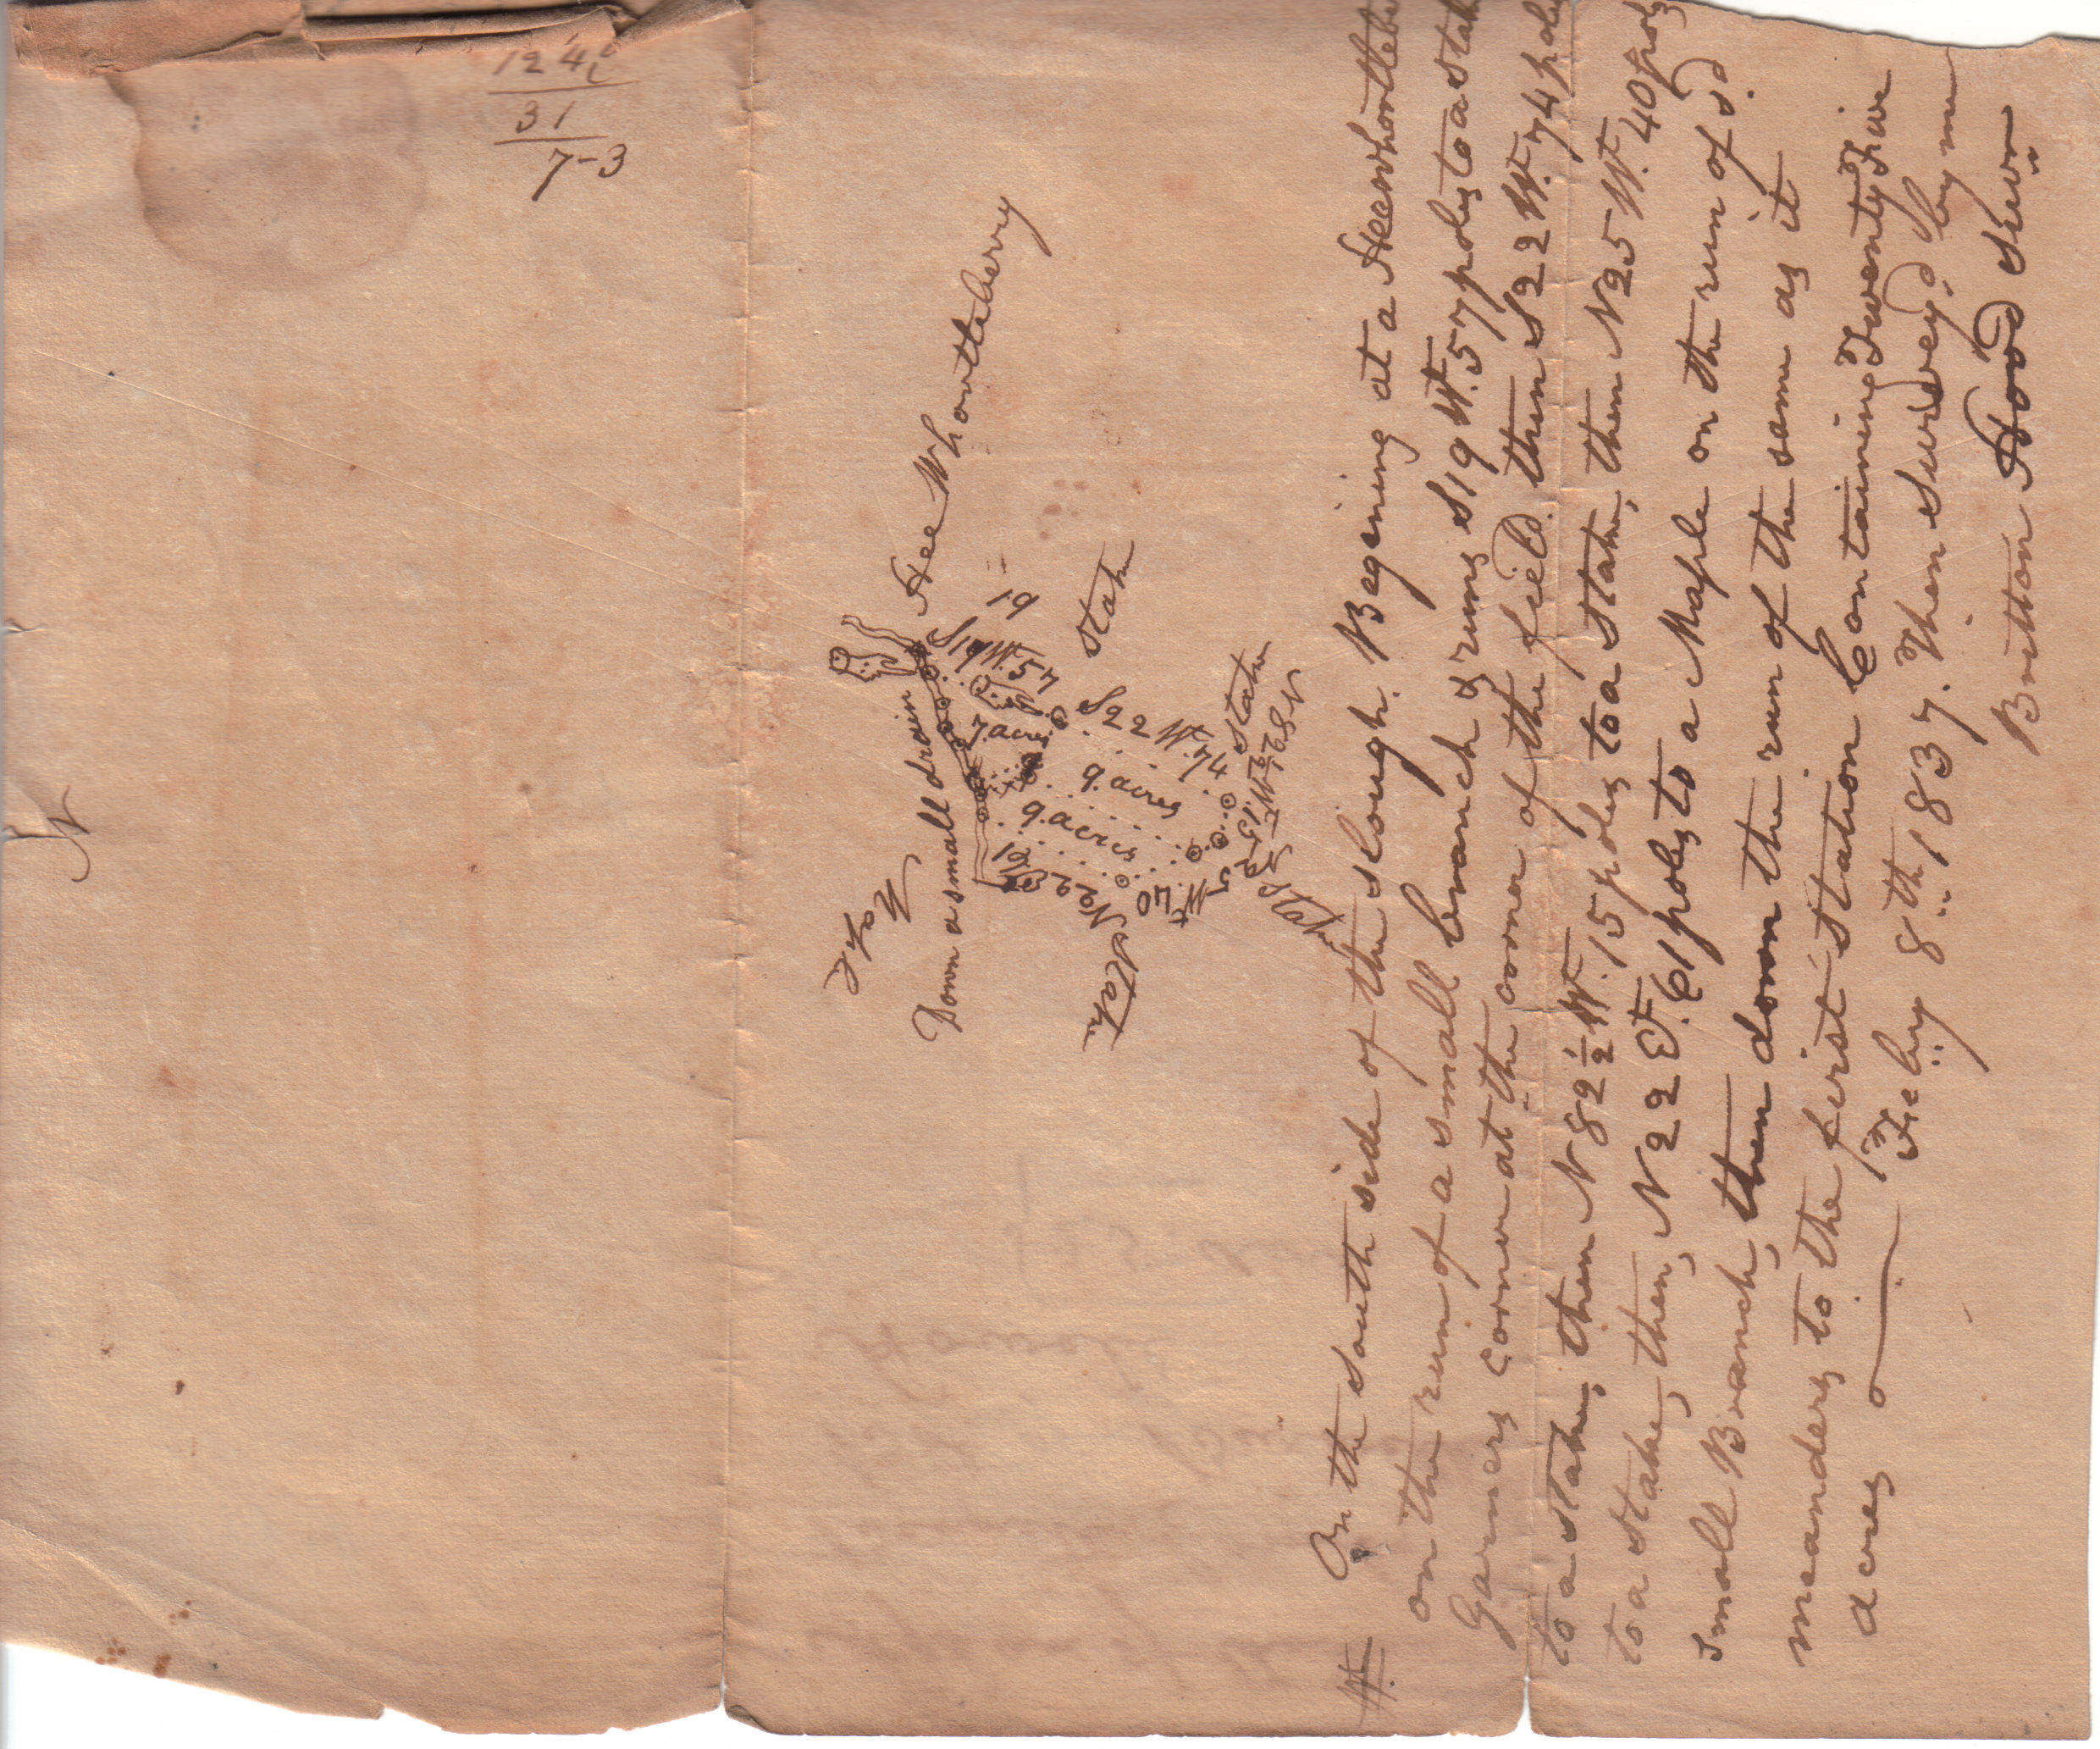 N
124
31
7-3
Hee Whortleberry
Down a small drain
S19 W.57
19
Stake
7.acres
S22 W.74
9.acres
9.acres
Stake
N82½ W.15
N25 W.40
Stake
N22
Stake
Maple
W. On the South side of the slough. Begining at a Heewhortleber
on the run of a small branch & runs S19 W.57 poles to a stak
Garners corner at the corner of the field. then S22 W.74 pole
to a stake, then N82½ W.15 poles to a stake, then N25 W.40 pols
to a stake, then, N22 E.61 poles to a Maple on the run of sd.
small Branch, then down the run of the same as it
meanders to the first station Containing Twenty Five
acres Feby 8th 1837. Then surveyd by me
Britton Hood Survr